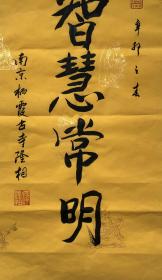 辛卯之春
智慧常明
南京栖霞古寺隆相